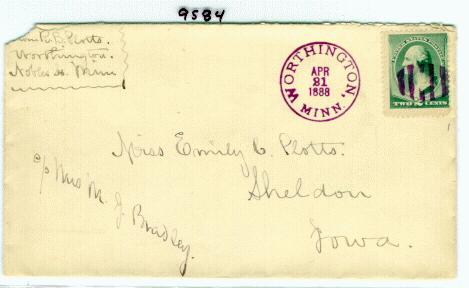 9584
R. B. Plotts.
Worthington.
Nobles Co. Minn
WORTHINGTON,
APR
21
1888
MINN.
TWO CENTS
Miss Emily C. Plotts.
Sheldon
Iowa.
c/o Mrs M. J. Bradley.